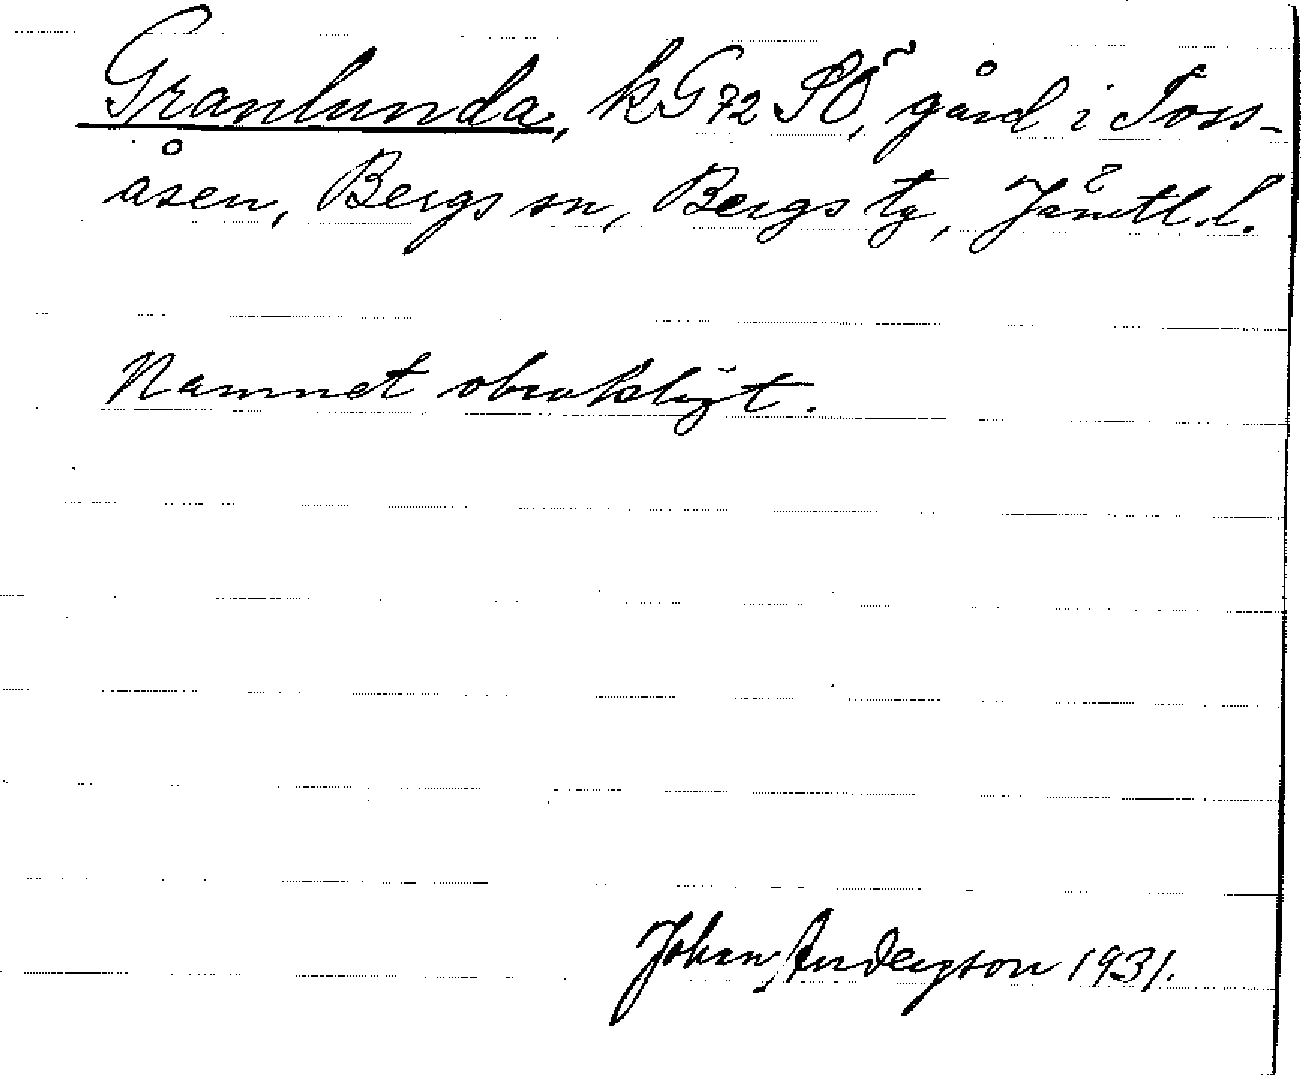 Granlunda, kG72SÖ, gård i Toss-
åsen, Bergs sn, Bergs tg, Jämtl.l.
Namnet obrukligt.
Johan Anderson 1931.